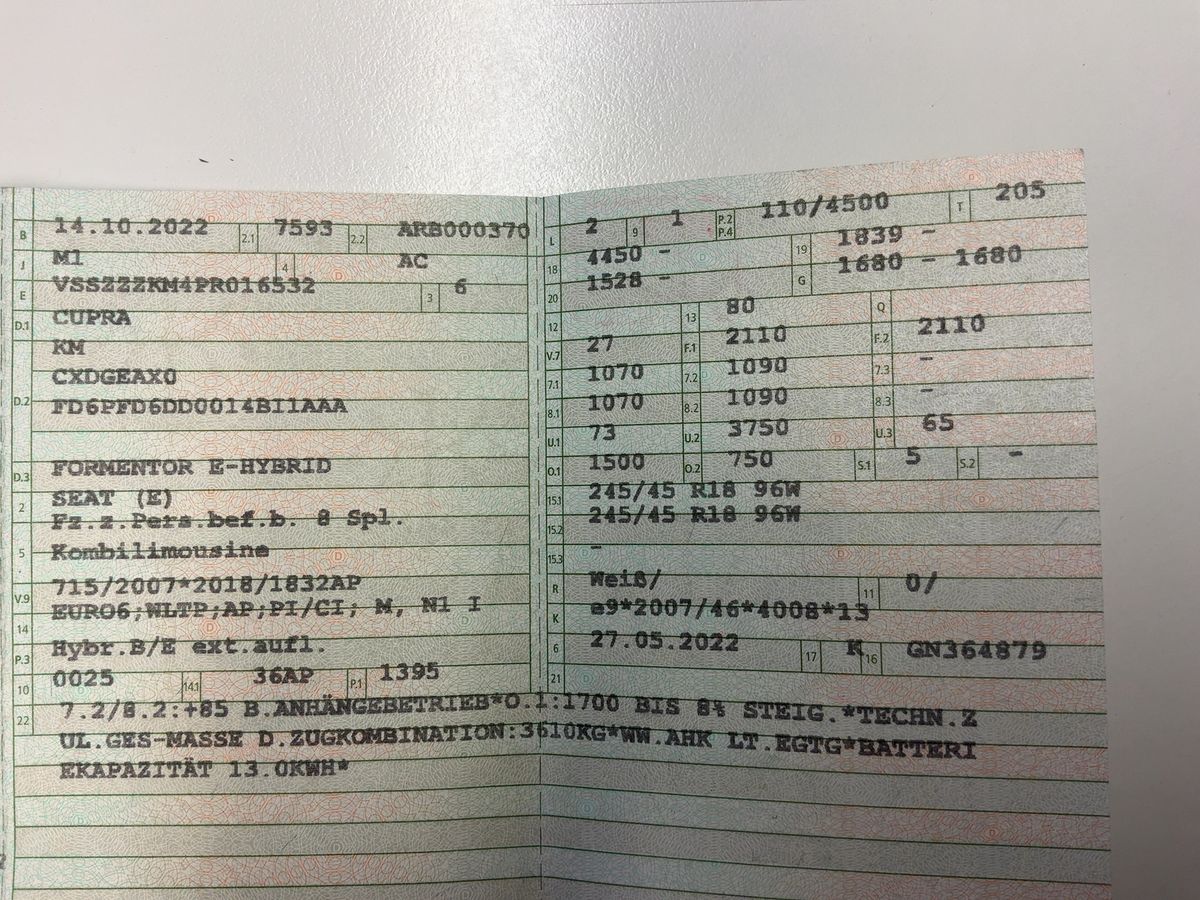 B 14.10.2022 2.1 7593 2.2 ARB000370
J M1 4 AC
E VSSZZZKM4PR016532 3 6
D.1 CUPRA
KM
D.2 CXDGEAX0
FD6PFD6DD0014BI1AAA
D.3 FORMENTOR E-HYBRID
2 SEAT (E)
Fz.z.Pers.bef.b. 8 Spl.
5 Kombilimousine
V.9 715/2007*2018/1832AP
14 EURO6;WLTP;AP;PI/CI; M, N1 I
P.3 Hybr.B/E ext.aufl.
10 0025 14.1 36AP P.1 1395
L 2 9 1 P.2 P.4 110/4500 T 205
18 4450 - 19 1839 -
20 1528 - G 1680 - 1680
12 13 80 Q
V.7 27 F.1 2110 F.2 2110
7.1 1070 7.2 1090 7.3 -
8.1 1070 8.2 1090 8.3 -
U.1 73 U.2 3750 U.3 65
O.1 1500 O.2 750 S.1 5 S.2 -
15.1 245/45 R18 96W
15.2 245/45 R18 96W
15.3 -
R Weiß/ 11 0/
K e9*2007/46*4008*13
6 27.05.2022 17 K 16 GN364879
21
22 7.2/8.2:+85 B.ANHÄNGEBETRIEB*O.1:1700 BIS 8% STEIG.*TECHN.Z
UL.GES-MASSE D.ZUGKOMBINATION:3610KG*WW.AHK LT.EGTG*BATTERI
EKAPAZITÄT 13.0KWH*